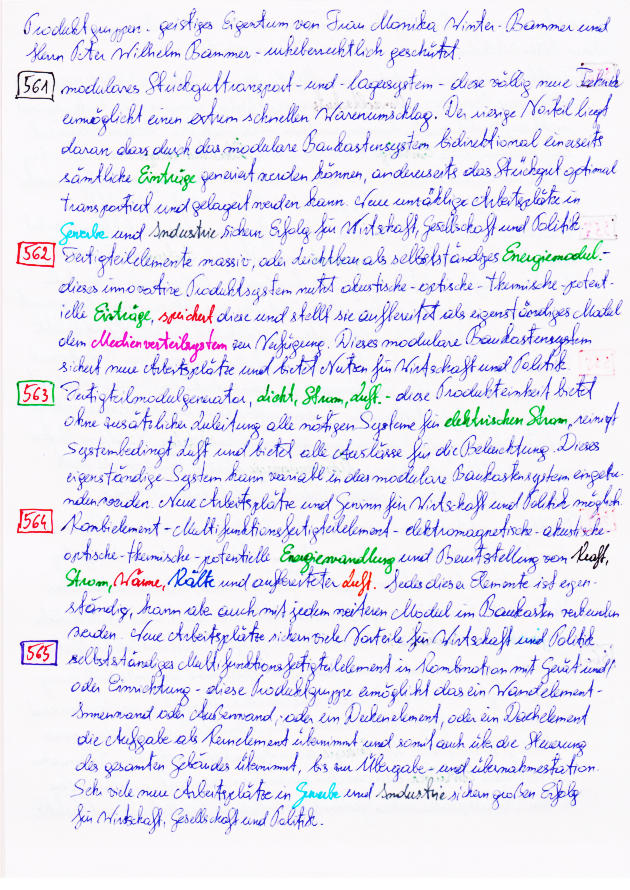 Produktgruppen - geistiges Eigentum von Frau Monika Winter-Bammer und
Herrn Peter Wilhelm Bammer - urheberrechtlich geschützt.
561 modulares Stückguttransport- und -lagesystem - diese völlig neue Technik
ermöglicht einen extrem schnellen Warenumschlag. Der riesige Vorteil liegt
daran dass durch das modulare Baukastensystem bidirektional einerseits
sämtliche Einträge generiert werden können, andererseits das Stückgut optimal
transportiert und gelagert werden kann. Neue unzählige Arbeitsplätze in
Gewerbe und Industrie sichern Erfolg für Wirtschaft, Gesellschaft und Politik
562 Fertigteilelemente massiv, oder leichtbau als selbstständiges Energiemodul. -
dieses innovative Produktsystem nutzt akustische-optische-thermische-potent-
ielle Einträge, speichert diese und stellt sie aufbereitet als eigenständiges Modul
dem Medienverteilsystem zur Verfügung. Dieses modulare Baukastensystem
sichert neue Arbeitsplätze und bietet Nutzen für Wirtschaft und Politik.
563 Fertigteilmodulgenerator, Licht, Strom, Luft. - diese Produkteinheit bietet
ohne zusätzlicher Zuleitung alle nötigen Systeme für elektrischen Strom, reinigt
systembedingt Luft und bietet alle Auslässe für die Beleuchtung. Dieses
eigenständige System kann variabel in das modulare Baukastensystem eingebu-
nden werden. Neue Arbeitsplätze und Gewinn für Wirtschaft und Politik möglich.
564 Kombielement - Multifunktionsfertigteilelement - elektromagnetische-akustische-
optische-thermische-potentielle Energiewandlung und Bereitstellung von Kraft,
Strom, Wärme, Kälte und aufbereiteter Luft. Jedes dieser Elemente ist eigen-
ständig, kann aber auch mit jedem weiteren Modul im Baukasten verbunden
werden. Neue Arbeitsplätze sichern viele Vorteile für Wirtschaft und Politik
565 selbstständiges Multifunktionsfertigteilelement in Kombination mit Gerät und/
oder Einrichtung - diese Produktgruppe ermöglicht das ein Wandelement -
Innenwand oder Außenwand, oder ein Deckenelement, oder ein Dachelement
die Aufgabe als Kernelement übernimmt und somit auch über die Steuerung
des gesamten Gebäudes übernimmt, bis zur Übergabe- und übernahmestation.
Sehr viele neue Arbeitsplätze in Gewerbe und Industrie sichern großen Erfolg
für Wirtschaft, Gesellschaft und Politik.